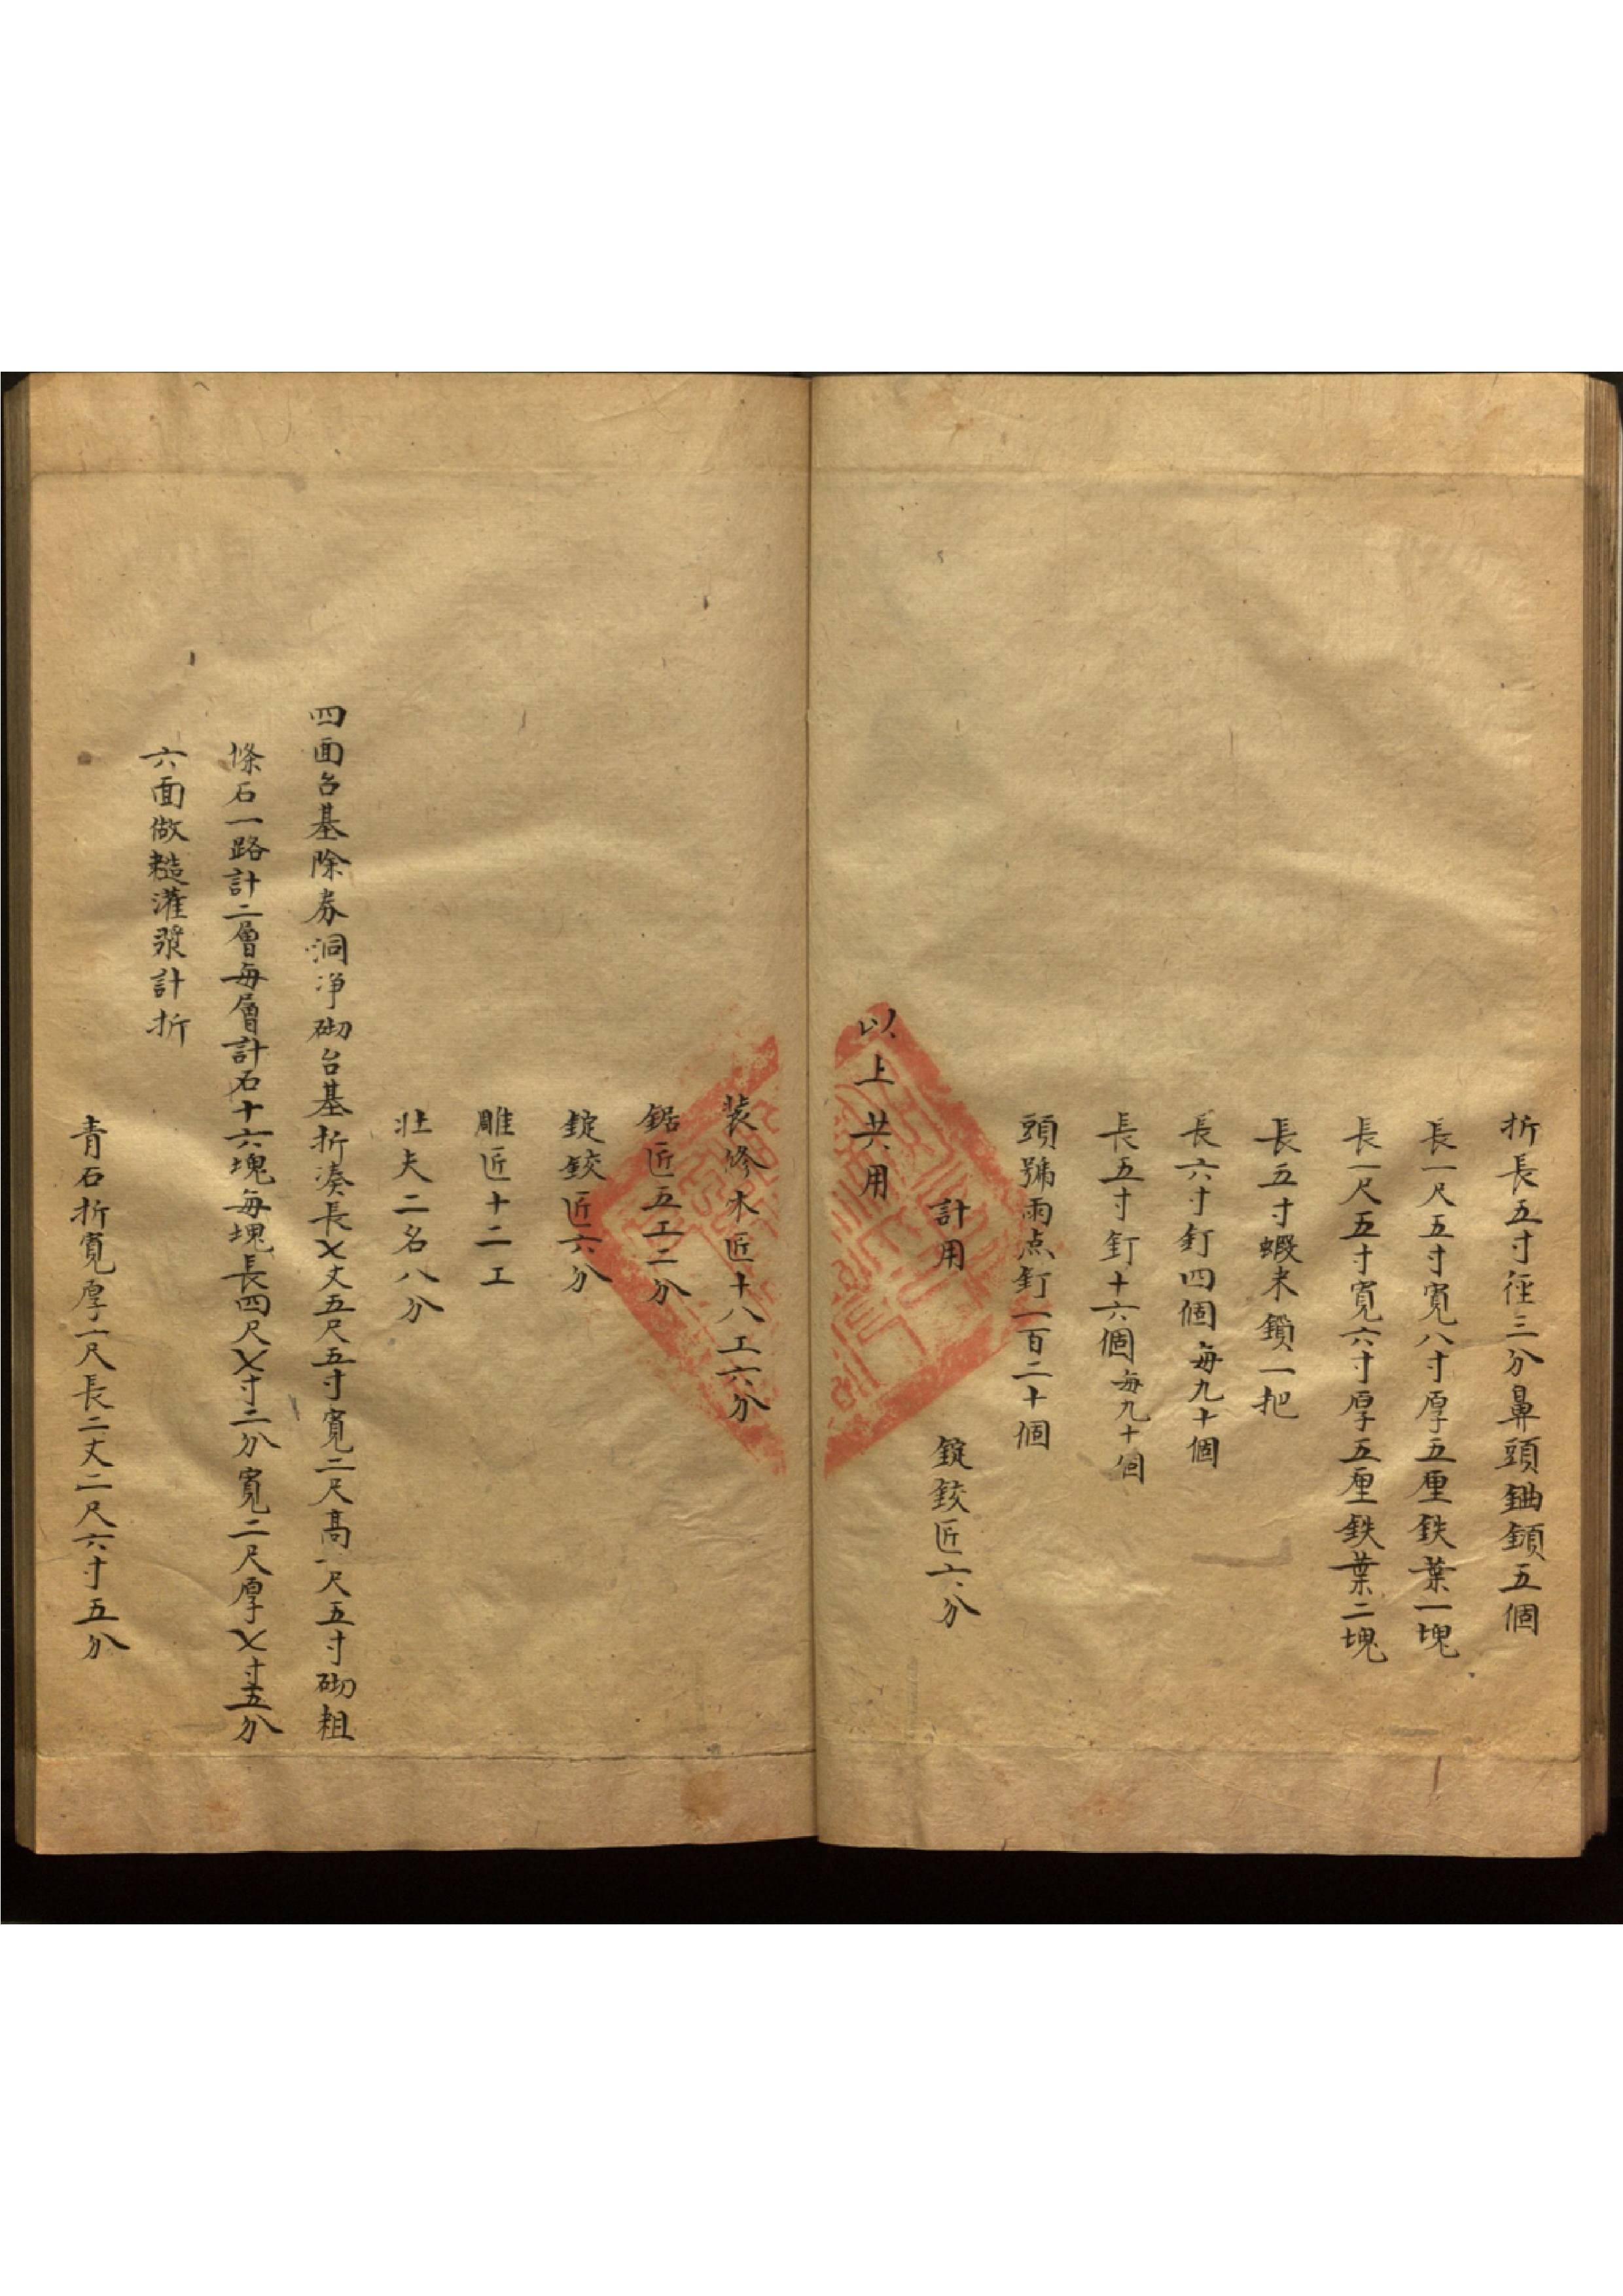 折長五寸徑三分鼻頭鈾鎖五個
長一尺五寸寬八寸厚五厘鉄葉一塊
長一尺五寸寬六寸厚五厘鉄葉二塊
長五寸蝦米鎖一把
長六寸釘四個每九十個
長五寸釘十六個每九十個
頭號雨点釘一百二十個
計用 錠鉸匠六分
以上共用
装修木匠十八工六分
鋸匠五工二分
錠鉸匠六分
雕匠十二工
壮夫二名八分
四面台基除券洞净砌台基折湊長乄丈五尺五寸寬二尺高一尺五寸砌粗
條石一路計二層每層計石十六塊每塊長四尺乄寸二分寬二尺厚乄寸五分
六面做糙灌漿計折
青石折寬厚一尺長二丈二尺六寸五分